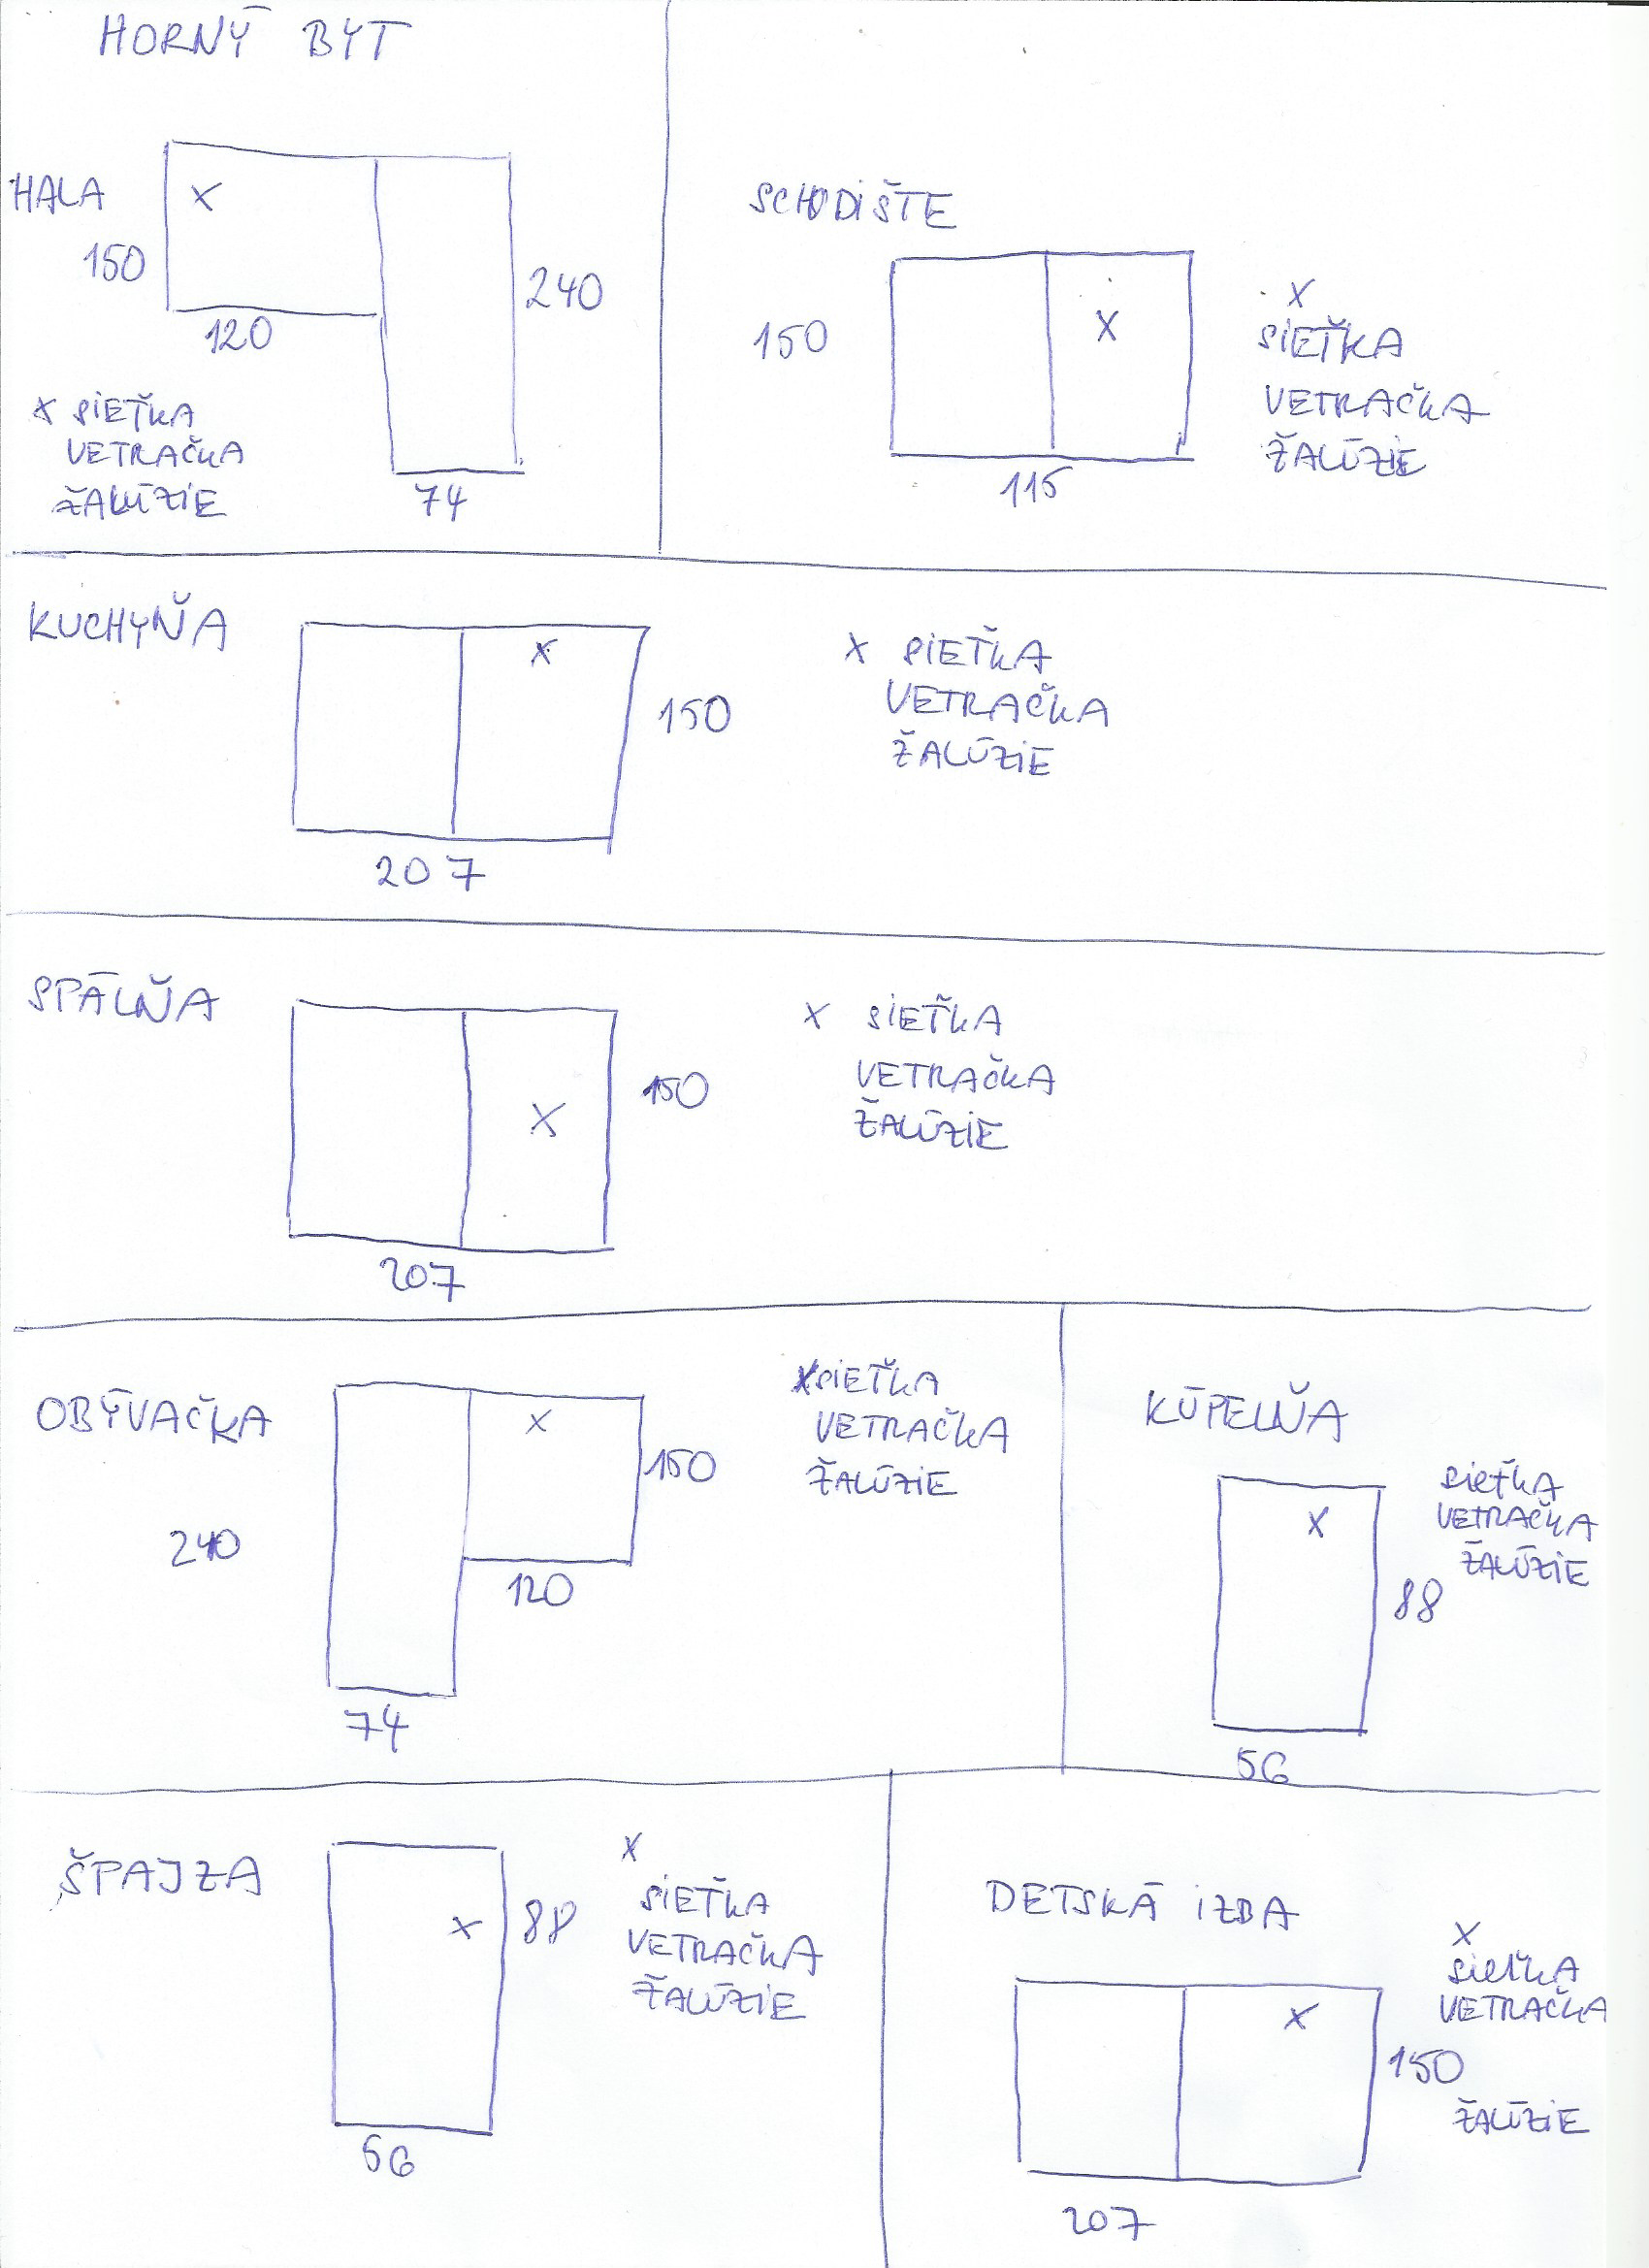 HORNÝ BYT
HALA
X
150
120
240
74
x SIEŤKA
VETRAČKA
ŽALÚZIE
SCHODIŠTE
150
X
115
x
SIEŤKA
VETRAČKA
ŽALÚZIE
KUCHYŇA
x
150
207
x SIEŤKA
VETRAČKA
ŽALÚZIE
SPÁLŇA
X
150
207
x SIEŤKA
VETRAČKA
ŽALÚZIE
OBÝVAČKA
x
150
240
120
74
x SIEŤKA
VETRAČKA
ŽALÚZIE
KÚPELŇA
X
88
56
sieťka
VETRAČKA
ŽALÚZIE
ŠPAJZA
x
88
56
x
SIEŤKA
VETRAČKA
ŽALÚZIE
DETSKÁ IZBA
x
150
207
x
sieťka
VETRAČKA
ŽALÚZIE